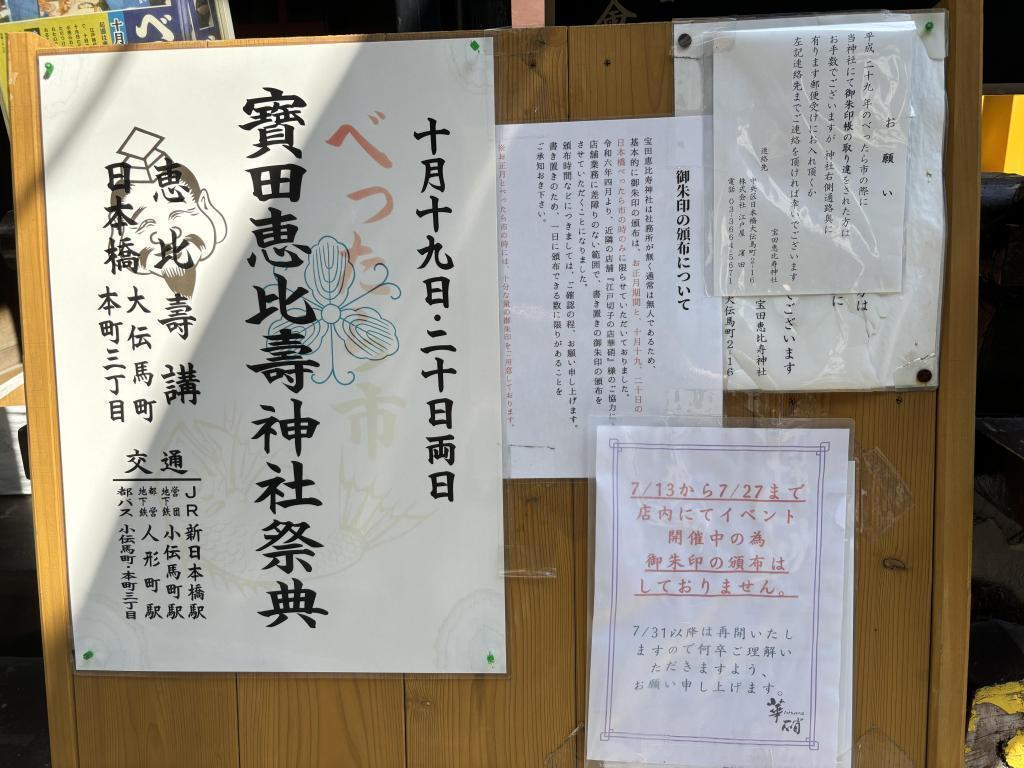 十月十九日・二十日両日
べったら市
寶田恵比壽神社祭典
恵比壽講
日本橋
大伝馬町
本町三丁目
交通
JR新日本橋駅
営団地下鉄 小伝馬町駅
都営地下鉄 人形町駅
都バス 小伝馬町・本町三丁目
御朱印の頒布について
宝田恵比寿神社は社務所が無く通常は無人であるため、
基本的に御朱印の頒布は、お正月期間と、十月十九、二十日の
日本橋べったら市の時のみに限らせていただいておりました。
令和六年四月より、近隣の店舗『江戸切子の店華硝』様のご協力に
店舗業務に差障りのない範囲で、書き置きの御朱印の頒布を
させていただくことになりました。
頒布時間などにつきましては、ご確認の程、お願い申し上げます。
書き置きのため、一日に頒布できる数に限りがあることを
ご承知おき下さい。
※お正月とべったら市の時には、十分な量の御朱印をご用意しております。
お願い
平成二十九年のべったら市の際に
当神社にて御朱印帳の取り違をされた方は
お手数でございますが神社右側通路奥に
有ります郵便受けにお入れ頂くか
左記連絡先までご連絡を頂ければ幸いでございます
宝田恵比寿神社
連絡先
中央区日本橋大伝馬町2-16
株式会社 江戸屋 濱田
電話 03-3664-5671
方は
に
ございます
宝田恵比寿神社
大伝馬町2-16
7/13から7/27まで
店内にてイベント
開催中の為
御朱印の頒布は
しておりません。
7/31以降は再開いたし
ますので何卒ご理解い
ただきますよう、
お願い申し上げます。
華硝
會
べ
十月